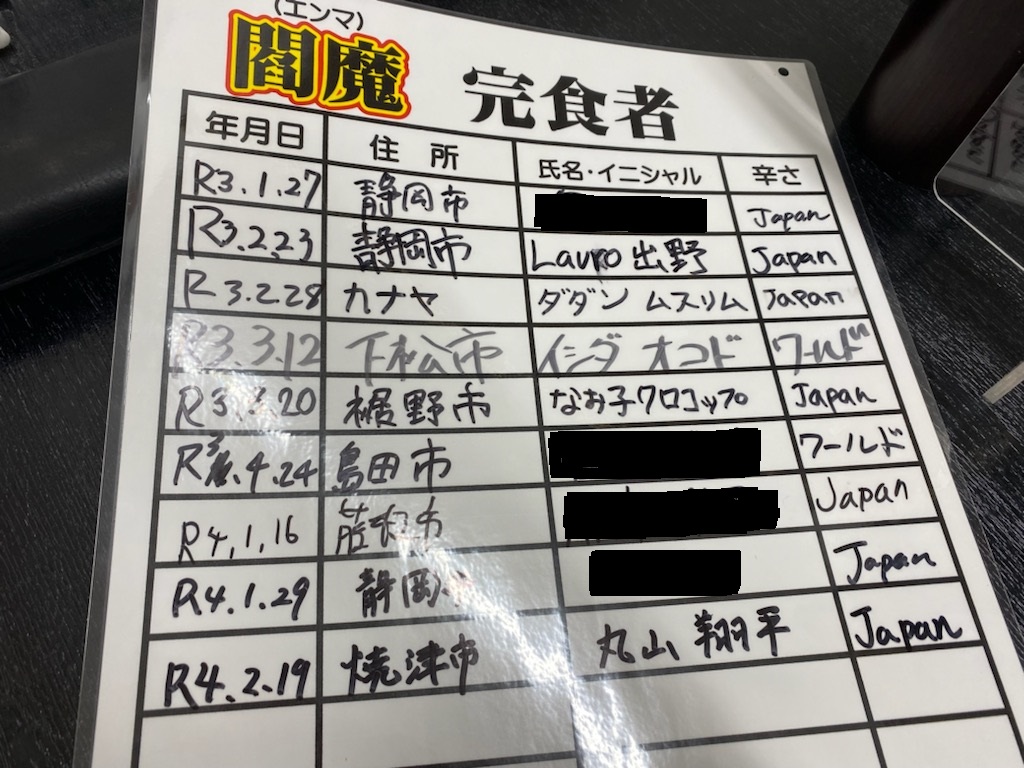 (エンマ)
閻魔 完食者
年月日 住所 氏名・イニシャル 辛さ
R3.1.27 静岡市 Japan
R3.2.23 静岡市 Lauro 出野 Japan
R3.2.28 カナヤ ダダン ムスリム Japan
R3.3.12 下松市 イシダ オコド ワールド
裾野市 なお子クロコップ Japan
島田市 ワールド
R4.1.16 Japan
R4.1.29 静岡 Japan
R4.2.19 焼津市 丸山 翔平 Japan